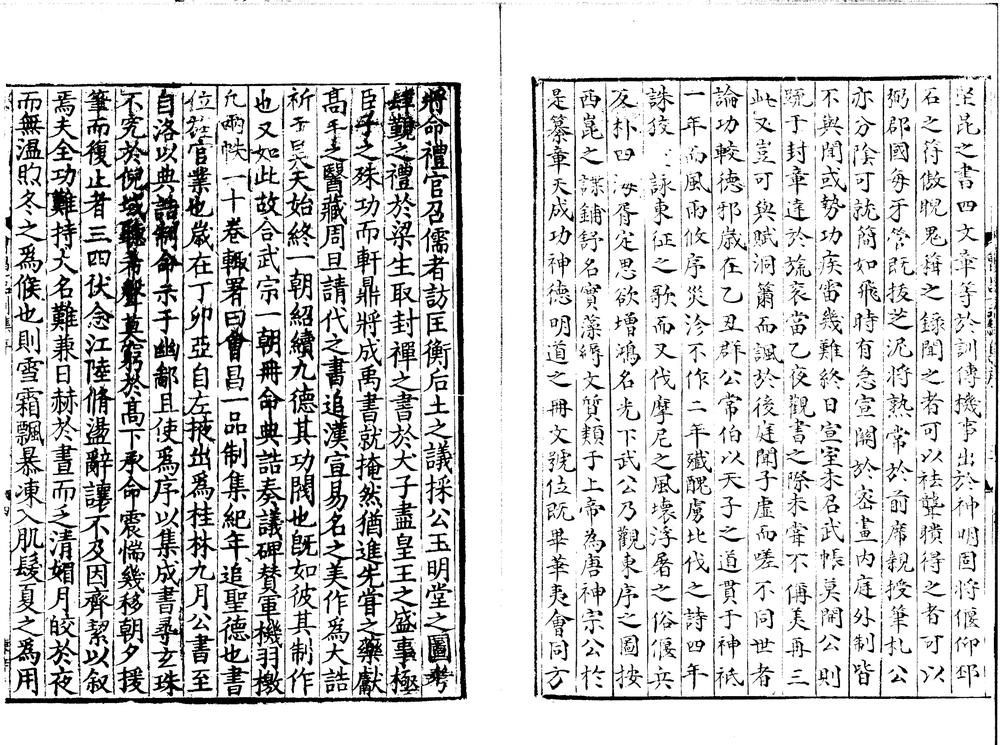 坐昆之書四文章等於訓傳機事出於神明固將偃仰邳
石之符傲睨鬼揖之錄聞之者可以袪聾瞶得之者可以
弼郡國每牙管既拔芝泥將熟常於前席親授筆札公
亦分陰可就簡如飛時有急宣關於密畫內庭外制皆
不與聞或勢功疾雷幾難終日宣室未召武帳莫開公則
䟽于封章達於旒扆當乙夜觀書之際未甞不稱美再三
此又豈可與賦洞簫而諷於後庭聞子虛而嗟不同世者
論功較德邪歲在乙丑群公常伯以天子之道貫于神祇
一年而風雨攸序災沴不作二年殲醜虜北伐之詩四年
誅狡 詠東征之歌而又伐摩尼之風壞浮屠之俗偃兵
反朴四海胥定思欲增鴻名光下武公乃觀東序之圖按
西崑之諜鋪舒名實藻縟文質類于上帝為唐神宗公於
是纂章天成功神德明道之冊文號位既畢華夷會同方
將命禮官召儒者訪匡衡后土之議採公玉明堂之圖考
肆覲之禮於梁生取封禪之書於犬子盡皇王之盛事極
臣子之殊功而軒鼎將成禹書就掩然猶進先甞之藥獻
高手之醫藏周旦請代之書追漢宣易名之美作為大誥
祈于昊天始終一朝紹續九德其功閥也既如彼其制作
也又如此故合武宗一朝冊命典誥奏議碑贊軍機羽檄
凡兩帙二十卷輙署曰會昌一品制集紀年追聖德也書
位旌官業也歲在丁卯亞自左掖出為桂林九月公書至
自洛以典誥制命示于幽鄙且使為序以集成書尋玄珠
不究於倪域聽希聲莫窮於高下承命震惴幾移朝夕援
筆而復止者三四伏念江陸脩盪辭讓不及因齊絜以敘
焉夫全功難持大名難兼日赫於晝而乏清媚月皎於夜
而無溫煦冬之為候也則雪霜飄暴凍入肌髮夏之為用